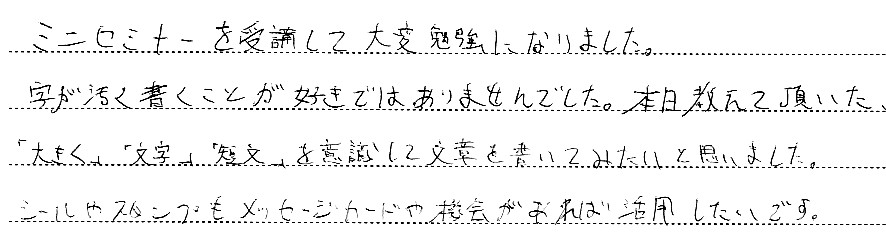 ミニセミナーを受講して大変勉強になりました。
字が汚く書くことが好きではありませんでした。本日教えて頂いた、
「大きく」「文字」「短文」を意識して文章を書いてみたいと思いました。
シールやスタンプもメッセージカードや機会があれば活用したいです。